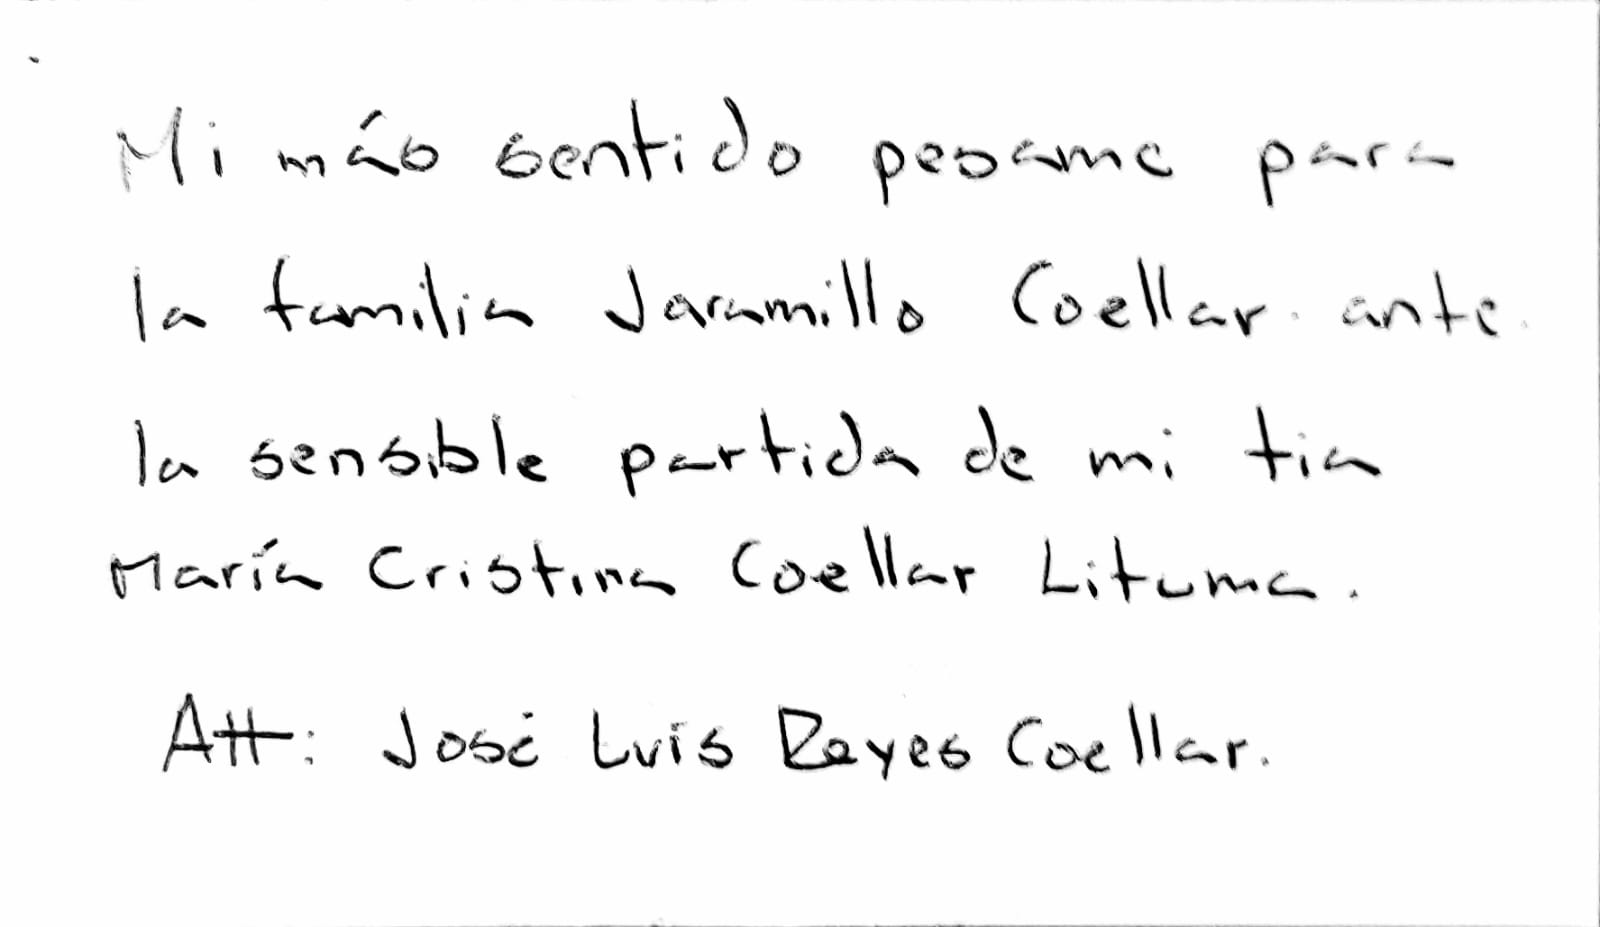 Mi más sentido pesame para
la familia Jaramillo Coellar ante
la sensible partida de mi tia
María Cristina Coellar Lituma.
Att: José Luis Reyes Coellar.